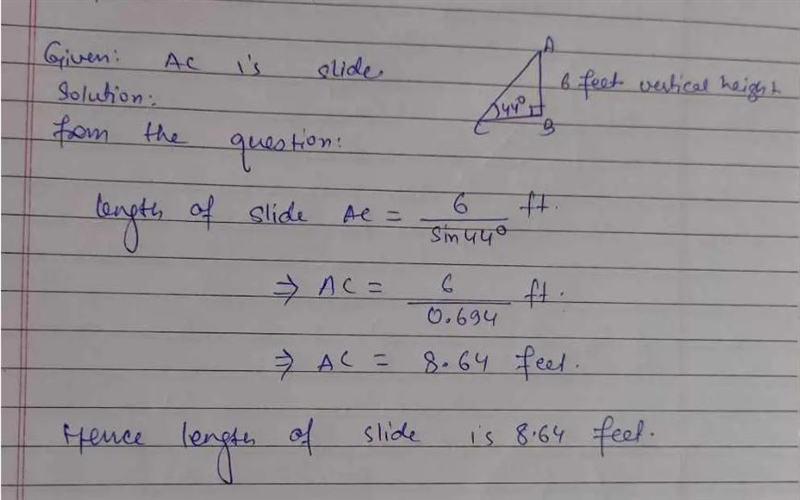 Given: AC is slide.
A
6 feet vertical height
44°
C B
Solution:
from the question:
length of slide AC = 6/sin44° ft.
⇒ AC = 6/0.694 ft.
⇒ AC = 8.64 feet.
Hence length of slide is 8.64 feet.